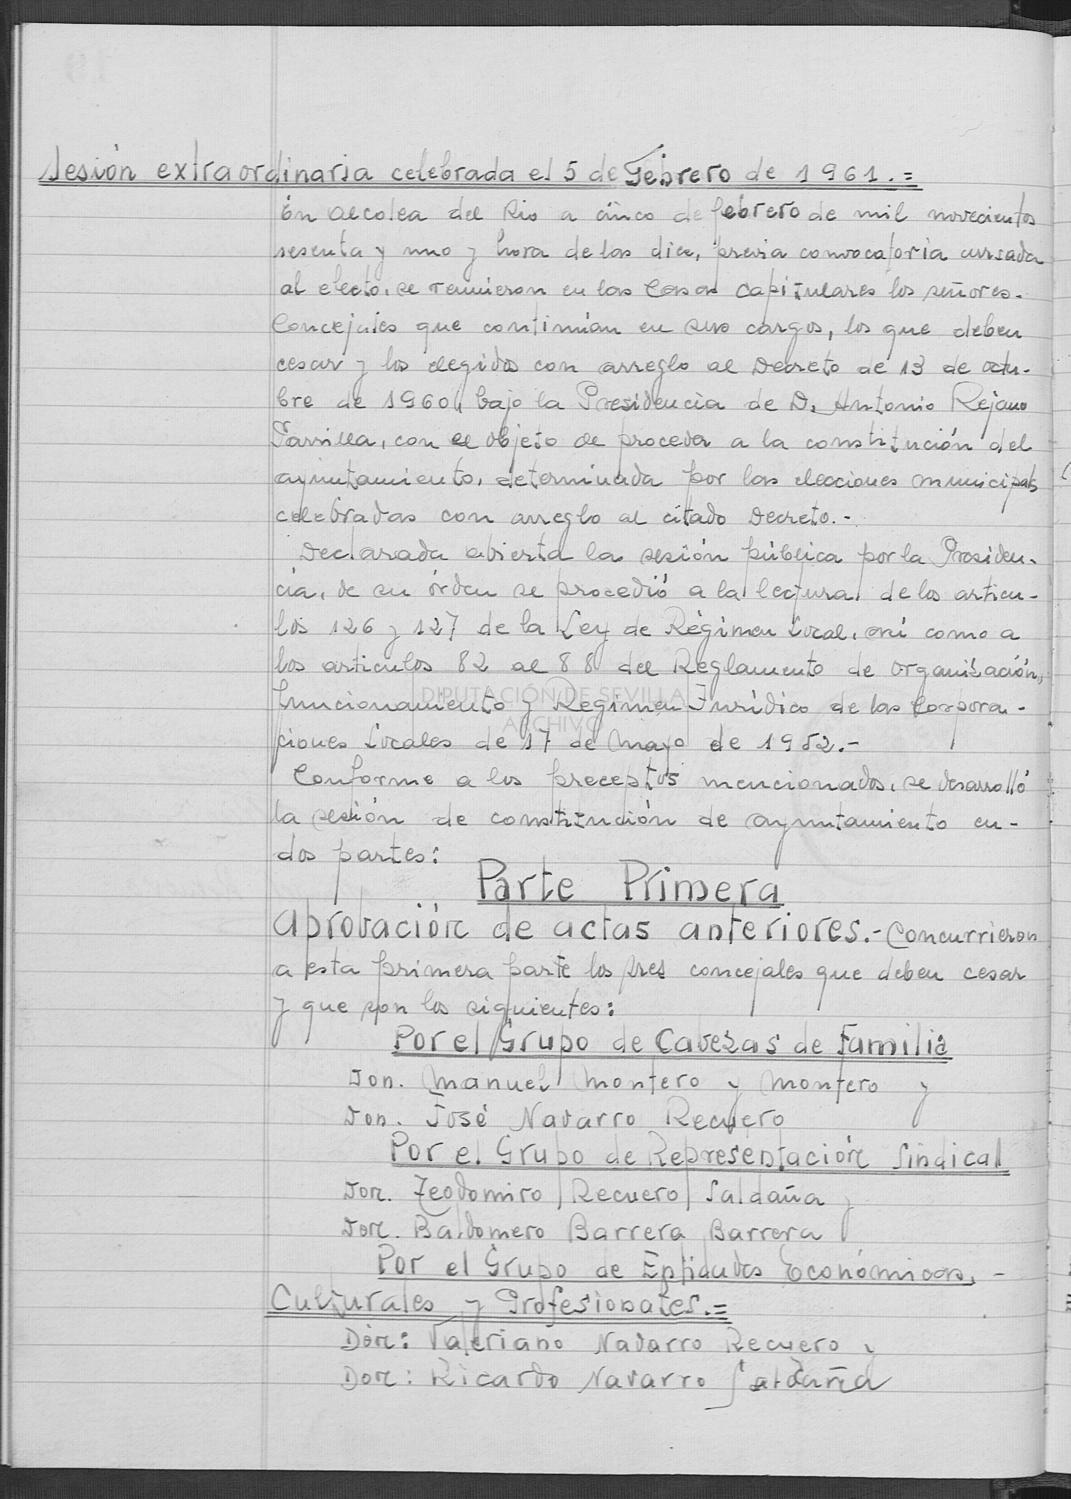 Sesión extraordinaria celebrada el 5 de Febrero de 1961.=
En Alcolea del Rio a cinco de febrero de mil novecientos
sesenta y uno y hora de las diez, previa convocatoria cursada
al efecto, se reunieron en las Casas Capitulares los señores.
Concejales que continúan en sus cargos, los que deben
cesar y los elegidos con arreglo al Decreto de 13 de octu-
bre de 1960, bajo la Presidencia de D. Antonio Rejano
con el objeto de proceder a la constitución del
ayuntamiento, determinada por las elecciones municipales
celebradas con arreglo al citado Decreto.-
Declarada abierta la sesión pública por la Presiden-
cia, de su órden se procedió a la lectura de los articu-
los 126 y 127 de la Ley de Régimen Local, así como a
los articulos 82 al 88 del Reglamento de organización,
funcionamiento y Regimen Jurídico de las Corpora-
ciones Locales de 17 de Mayo de 1952.-
Conforme a los preceptos mencionados, se desarrolló
la sesión de constitución de ayuntamiento en-
dos partes:
Parte Primera
Aprobación de actas anteriores.- Concurrieron
a esta primera parte los tres concejales que deben cesar
y que son los siguientes:
Por el Grupo de Cabezas de Familia
Don. Manuel Montero y Montero y
Don. José Navarro Recuero
Por el Grupo de Representación Sindical
Don. Teodomiro Recuero Saldaña y
Don. Baldomero Barrera Barrera
Por el Grupo de Entidades Económicas, -
Culturales y Profesionales.=
Don: Valeriano Navarro Recuero y
Don: Ricardo Navarro Saldaña
DIPUTACIÓN DE SEVILLA
ARCHIVO